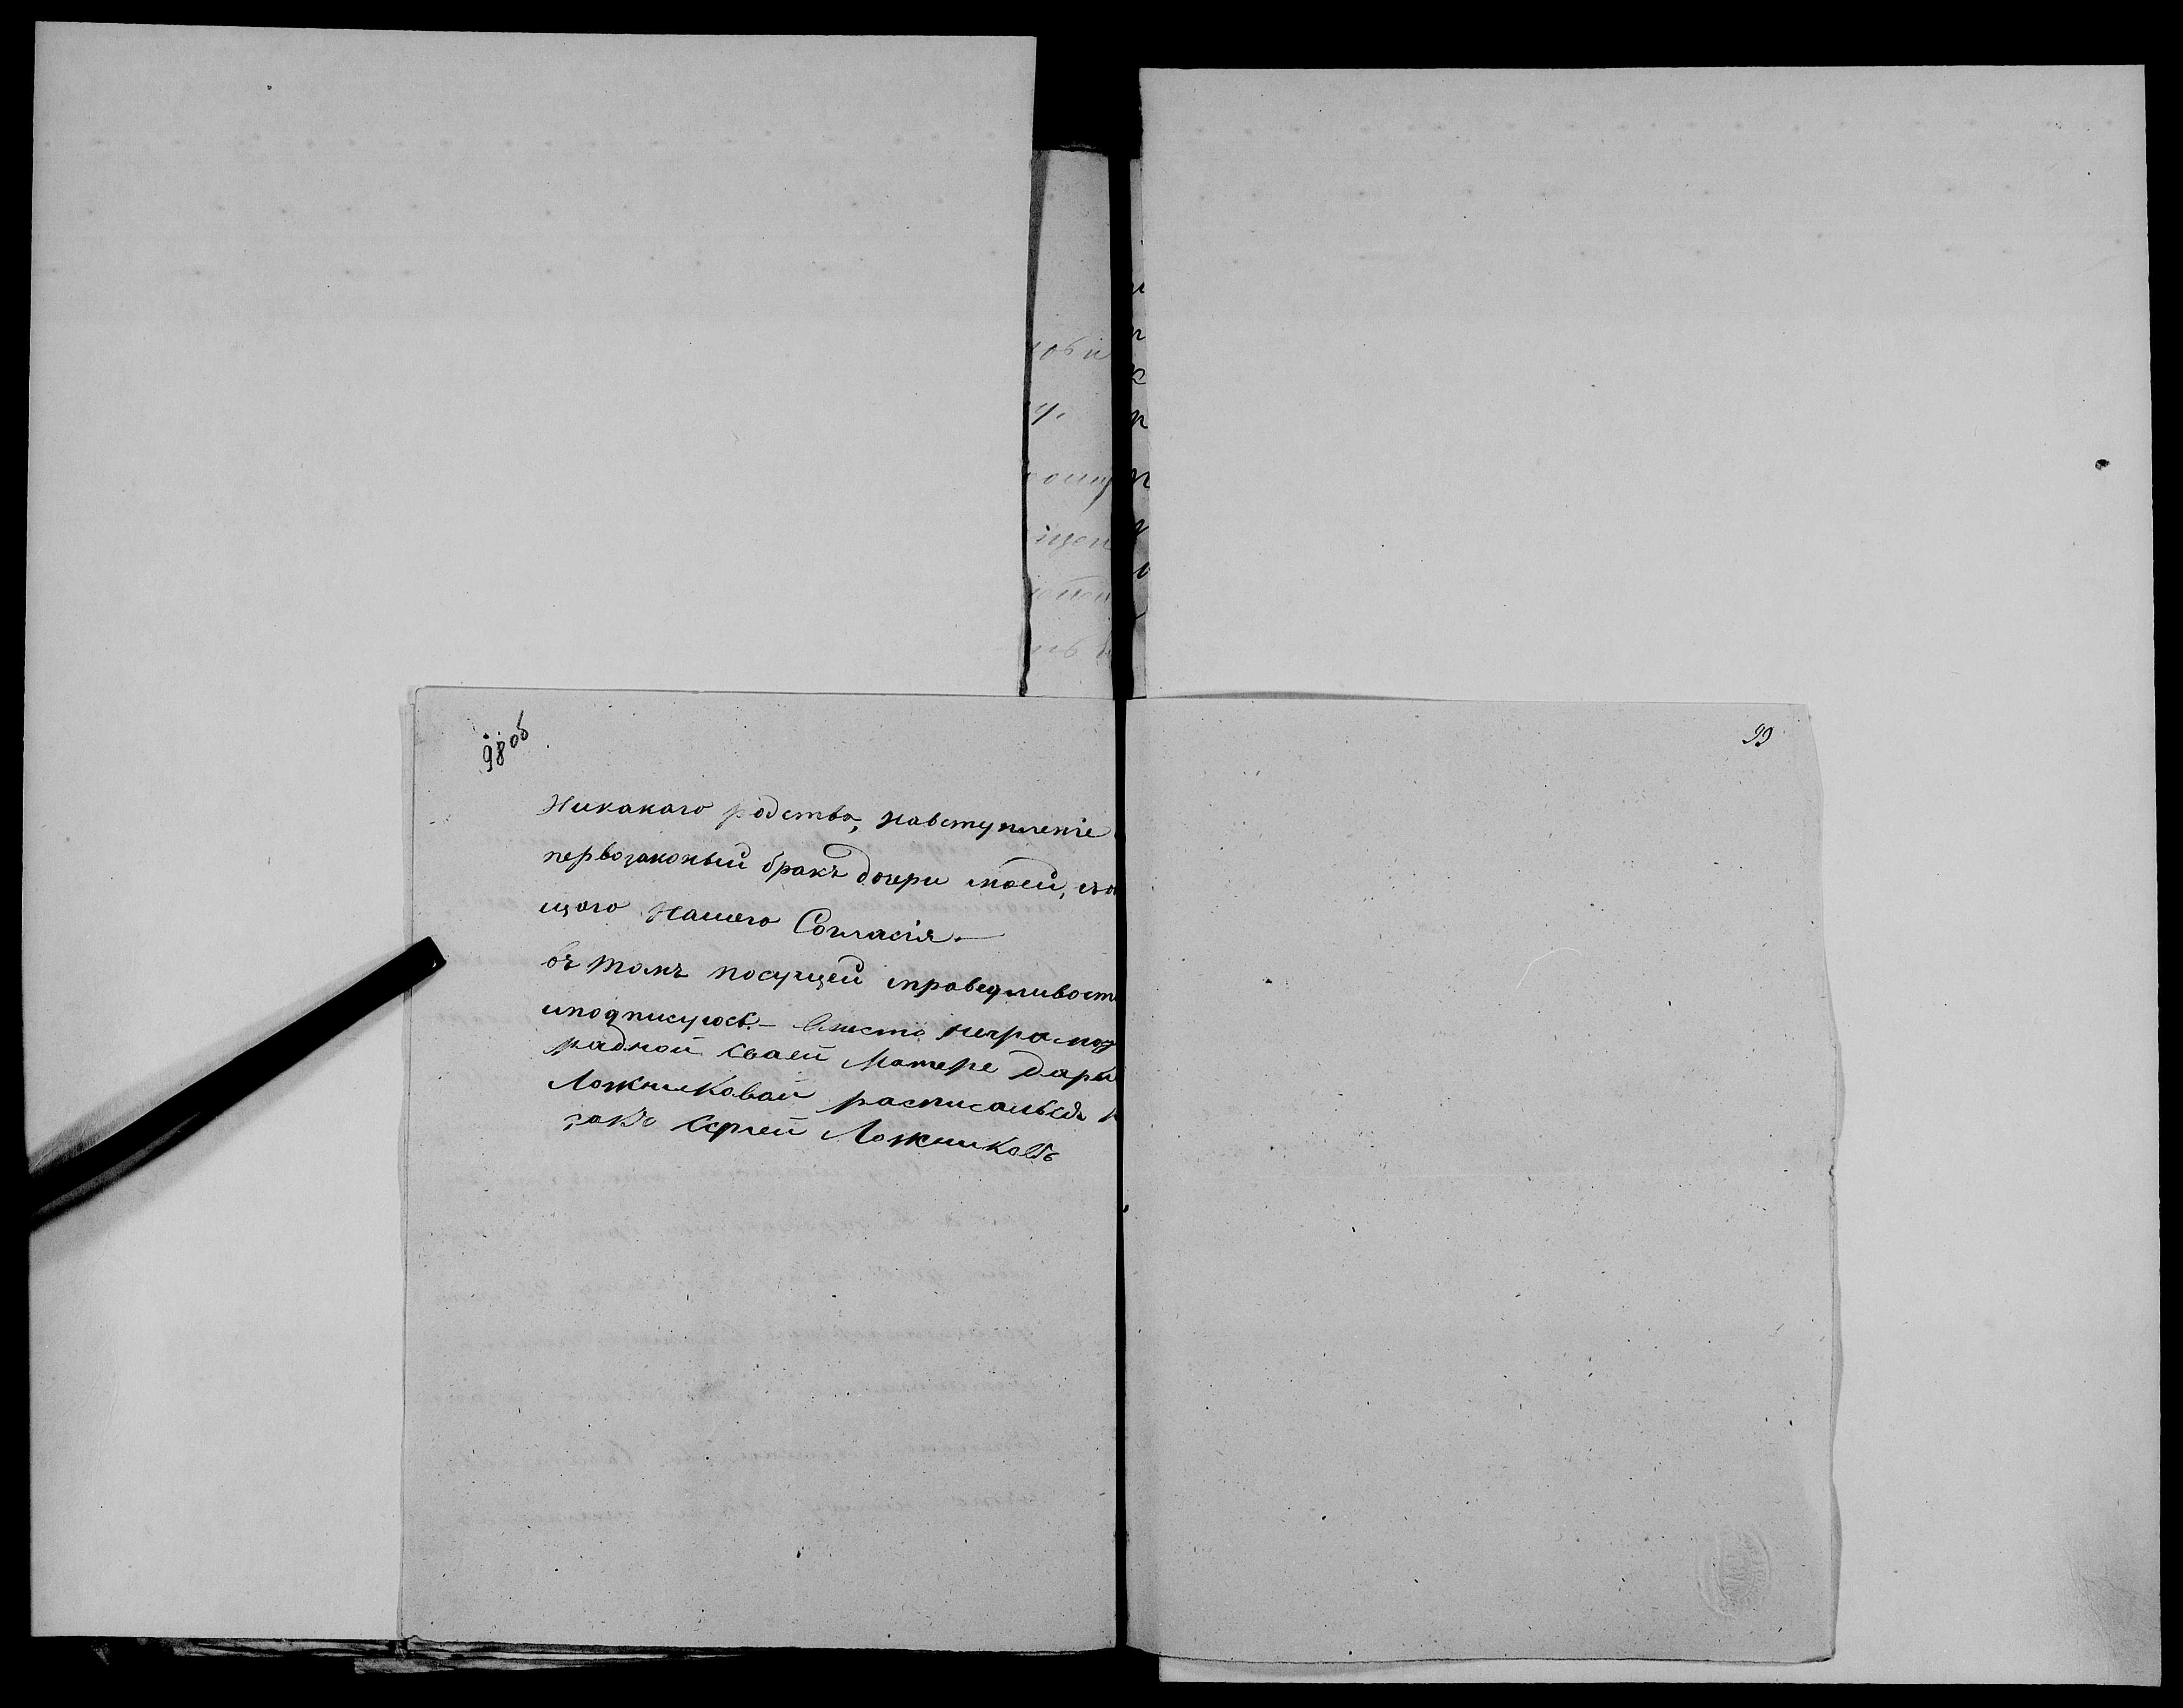 98об
Никакаго родства, навступленіе
первозаконый бракъ дочери моей, съо
щаго Нашего Согласія.—
въ томъ посущей справедливост
иподписуюсь.— Вместо неграмот
радной сваей Матере Дарьи
Ложниковай расписалься к
закъ Сергей Ложниковъ
99